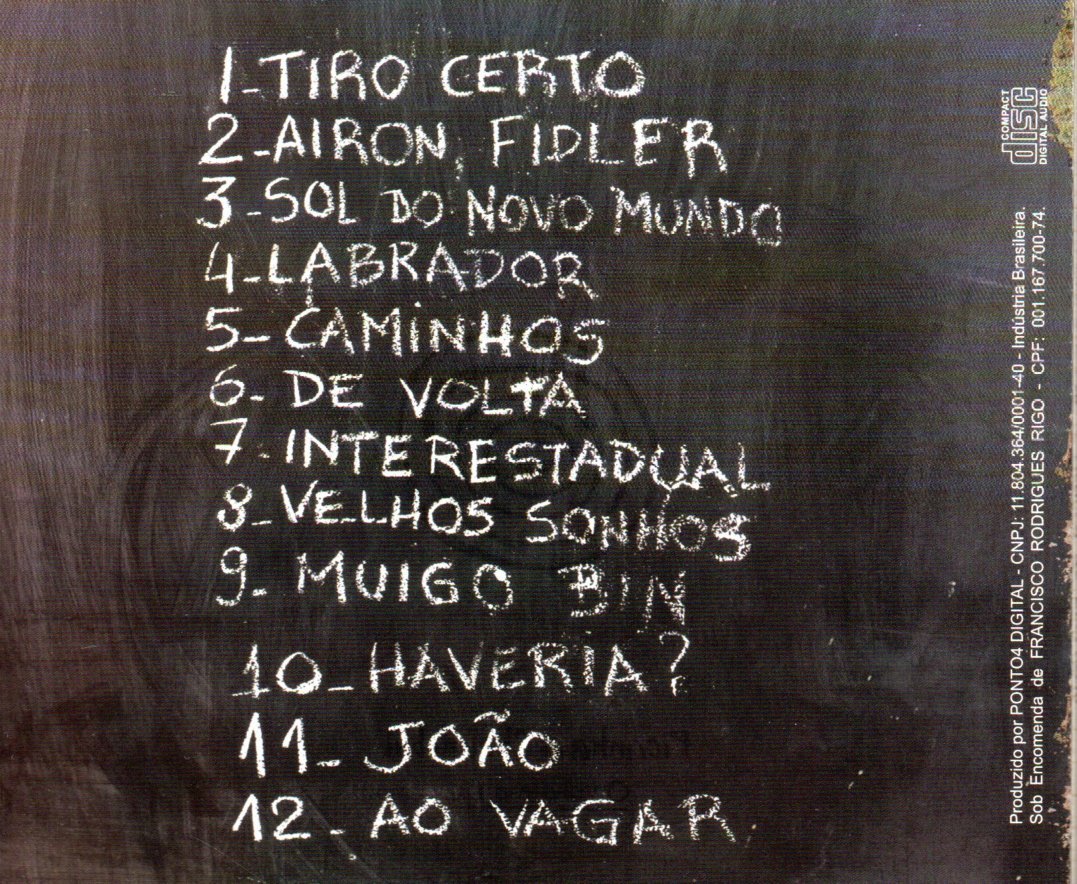 1-TIRO CERTO
2-AIRON, FIDLER
3-SOL DO NOVO MUNDO
4-LABRADOR
5-CAMiNHOS
6-DE VOLTA
7-INTERESTADUAL
8-VELHOS SONHOS
9-MUIGO BIN
10-HAVERIA?
11-JOÃO
12-AO VAGAR
COMPACT
disc
DIGITAL AUDIO
Produzido por PONTO4 DIGITAL - CNPJ: 11.804.364/0001-40 - Indústria Brasileira.
Sob Encomenda de FRANCISCO RODRIGUES RIGO - CPF: 001.167.700-74.